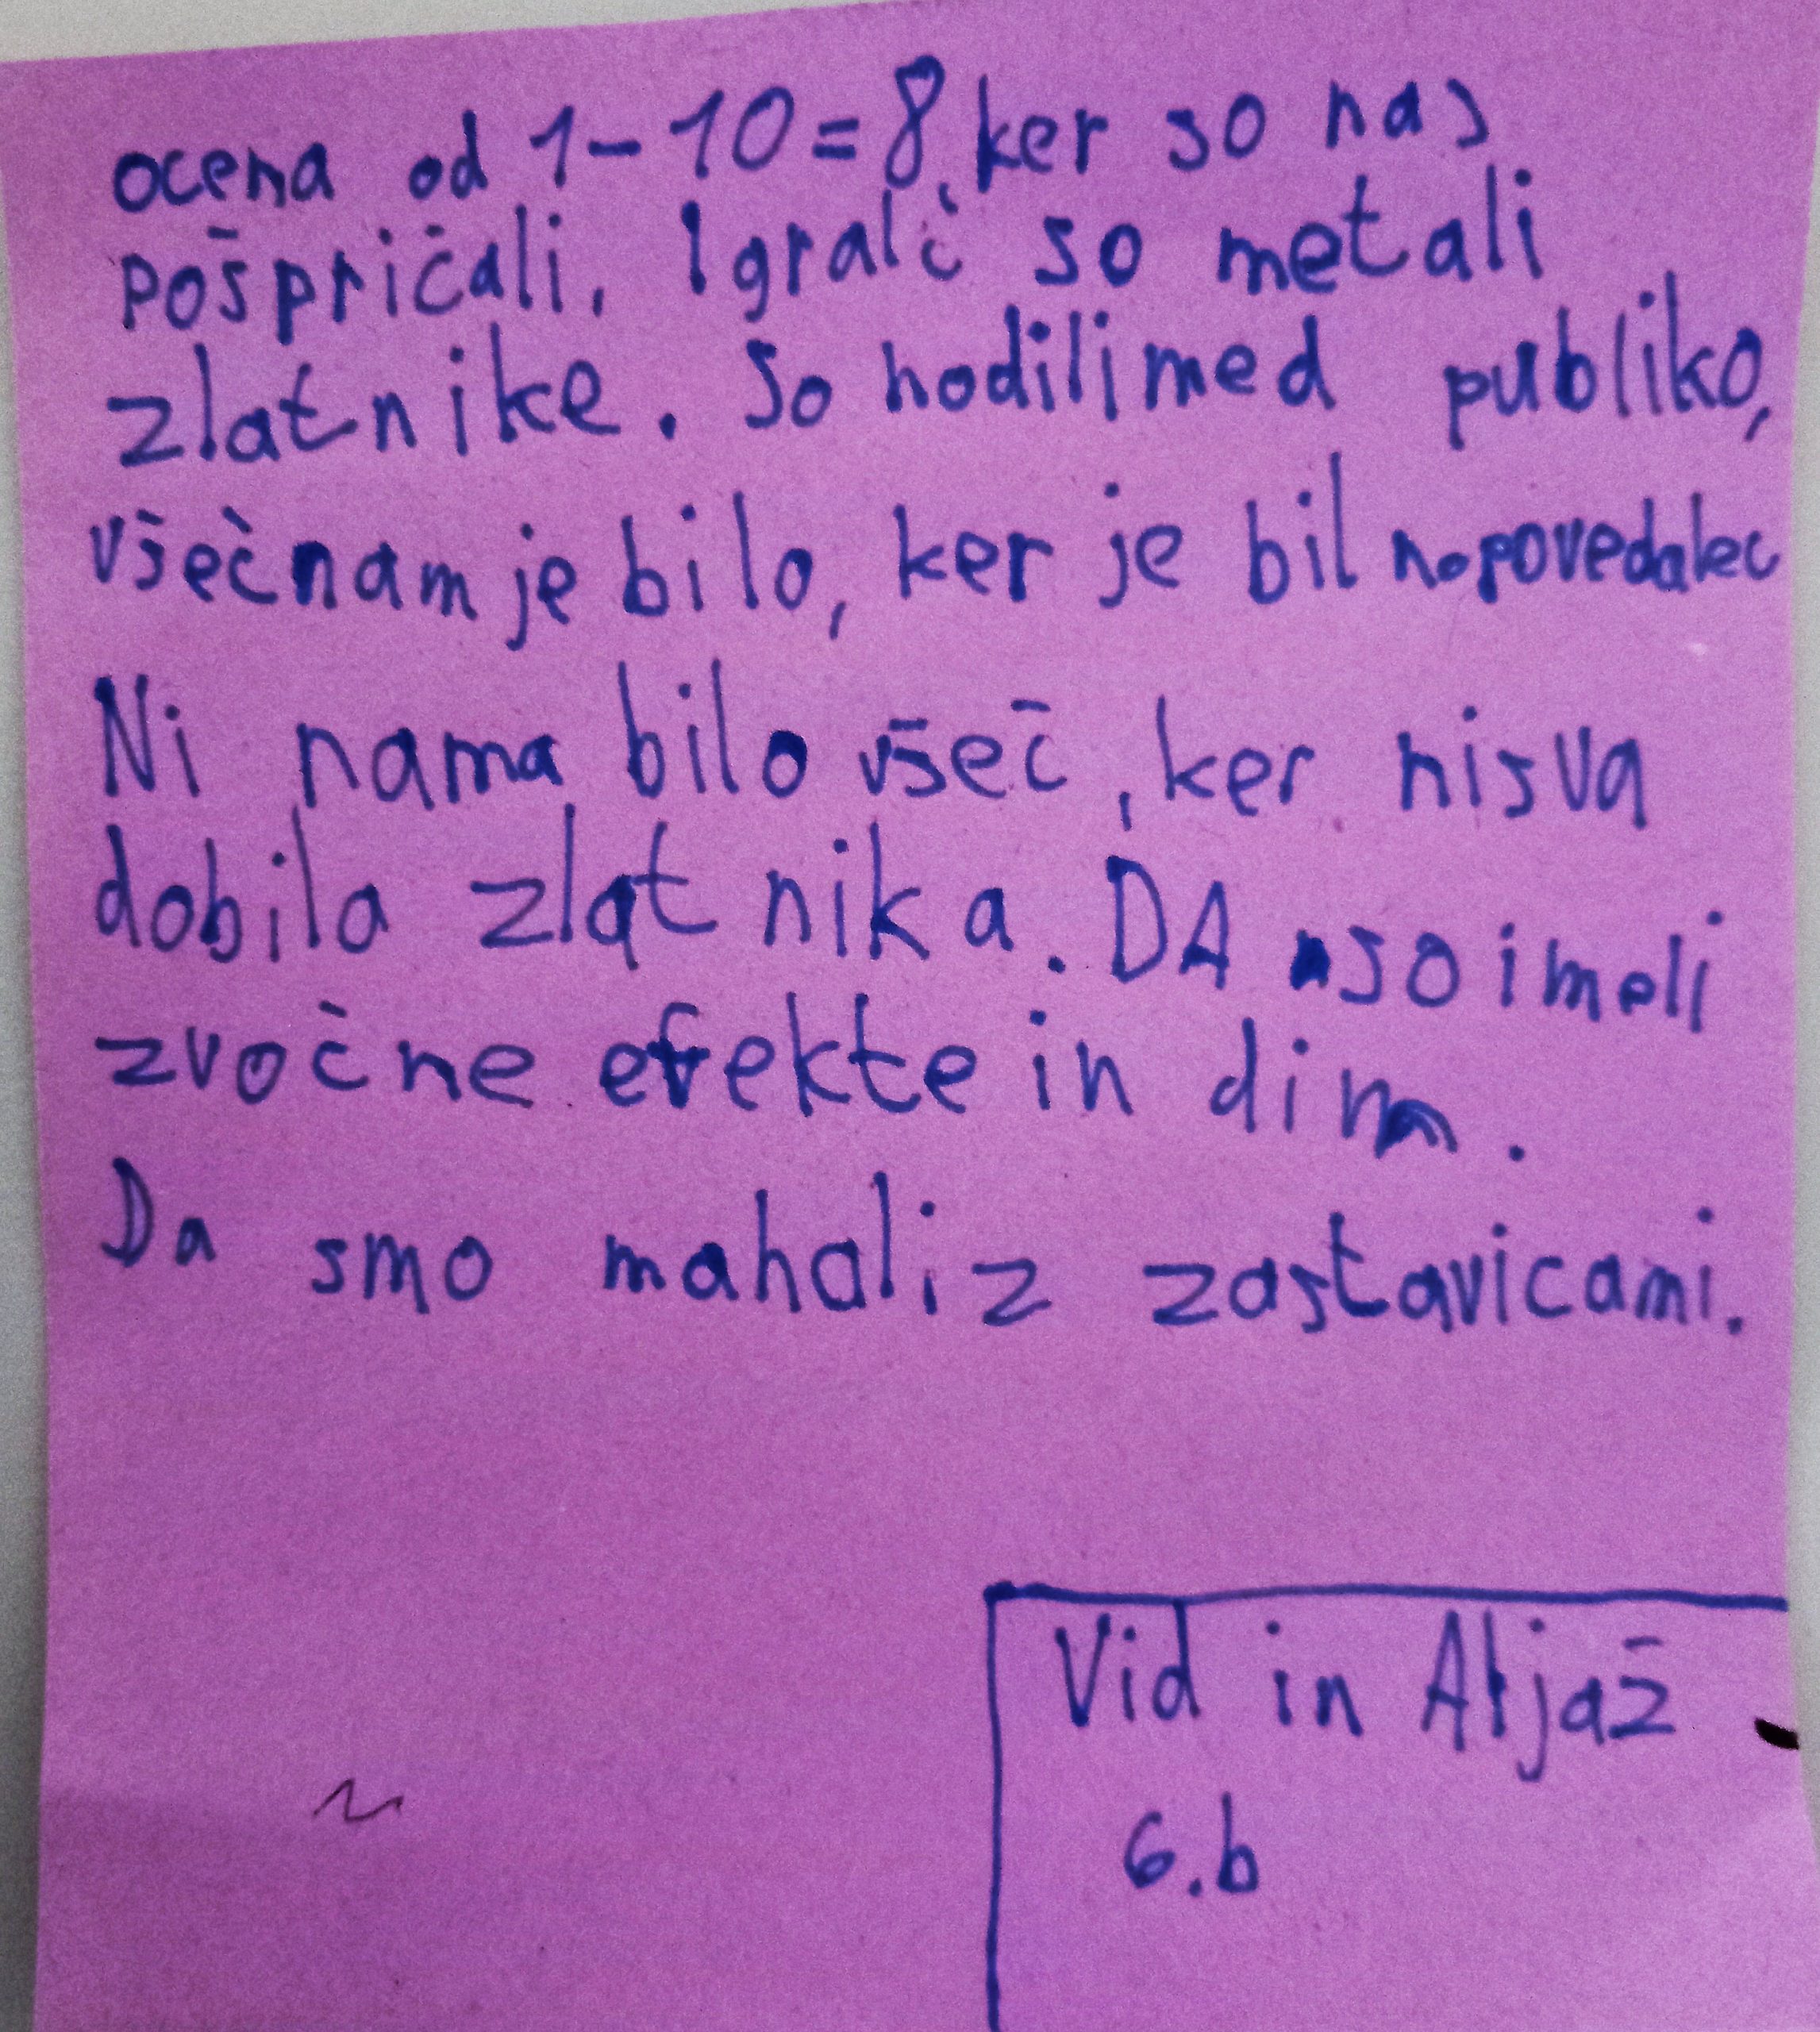 ocena od 1-10=8, ker so nas
pošpričali. Igralč so metali
zlatnike. So hodili med publiko,
všeč nam je bilo, ker je bil nopovedalec
Ni nama bilo všeč, ker nisva
dobila zlatnika. DA so imeli
zvočne efekte in dim.
Da smo mahali z zastavicami.
Vid in Aljaž
6.b